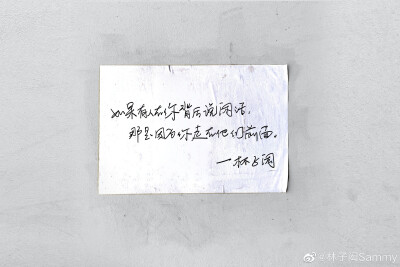 如果有人在你背后说闲话,
那是因为你走在他们前面。
一林上闲
@林子岚Sammy